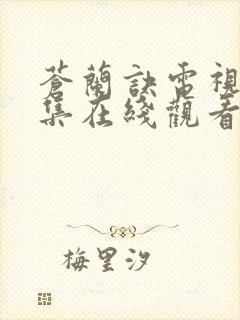 蒼蘭訣電視
集在綫觀看
梅里汐